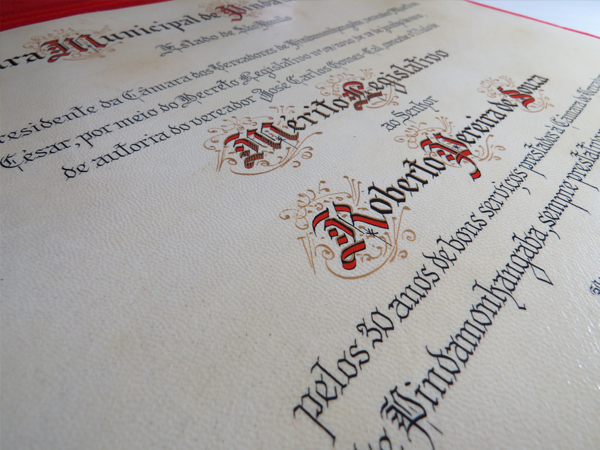 ara Municipal de Pinda
Estado de São Paulo
residente da Câmara dos Vereadores de Pindamonhangaba, vereador
César, por meio do Decreto Legislativo nº
de autoria do vereador José Carlos Gomes Cal,
Mérito Legislativo
ao Senhor
Roberto Pereira de Souza
pelos 30 anos de bons serviços prestados à Câmara de
Pindamonhangaba, sempre